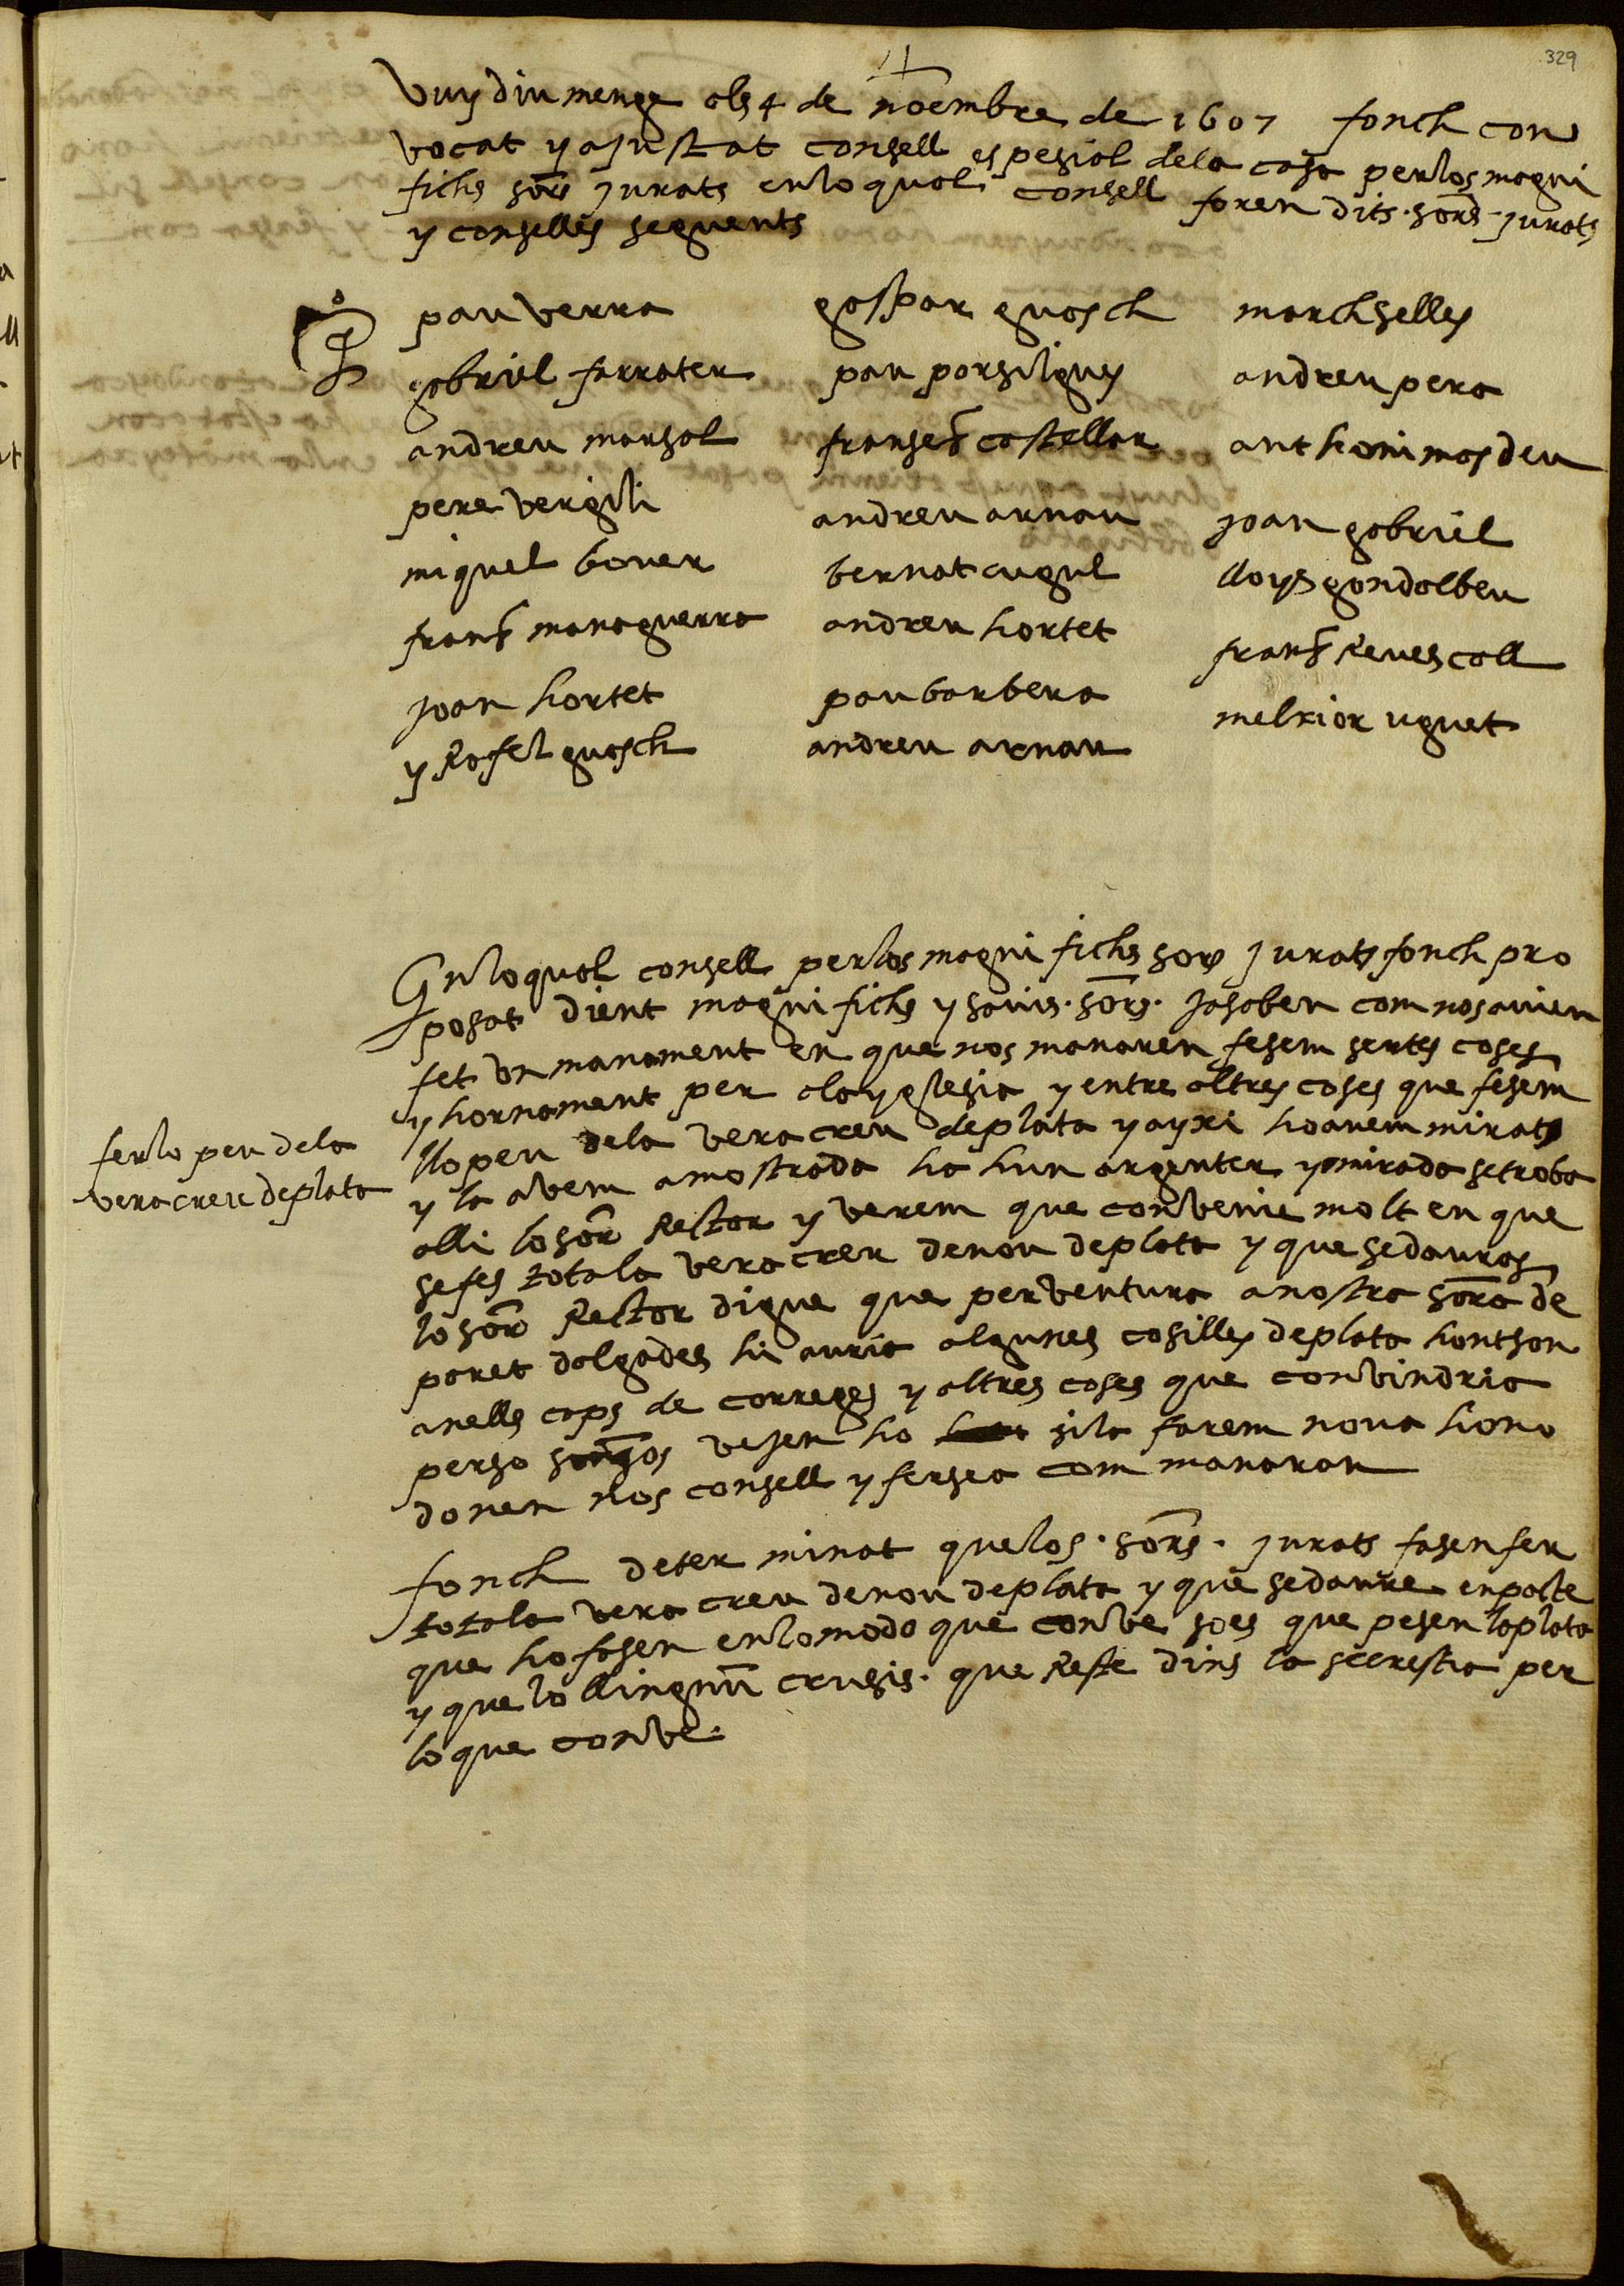 329
vuy diumenge als 4 de noembre de 1607 fonch con
vocat y ajustat consell espesial dela casa perlos magni
fichs sors jurats enlo qual consell foren dits . sors . jurats
y consellés seguents
pau verra
gabriel farrater
andreu marsal
pere vergili
miquel bover
frans managuerra
joan hortet
y Rafel guasch
gaspar guasch
pau porsilgues
fransés castellar
andreu arnau
bernat cugul
andreu hortet
pau barbera
andreu arnau
march selles
andreu pera
anthoni masdeu
joan gabriel
lloys gondolbeu
frans Revescall
melsior uguet
Enlo qual consell perlos magni fichs sors jurats fonch pro
posat dient magni fichs y savis . sors . ja saben com nos avien
fet un manament en que nos manaren fesem sertes coses
y hornament per ala yglesia y entre altres coses que fesem
llo peu dela vera creu de plata y ayxi ho avem mirat
y la avem amostrada ha hun argenter y mirada se troba
alli lo sor Rector y verem que convenie molt en que
se fes tota la vera creu de nou de plata y que se dauras
lo sor Rector digue que per ventura a nostra sora de
paret dalgades hi auria algunes cosilles de plata hont son
anells caps de correges y altres coses que convindria
perso vejen ho si la farem nova ho no
donen nos consell y fersea com manaran
ferlo peu dela
vera creu de plata
fonch deter minat que los . sors . jurats fasen fer
tota la vera creu de nou de plata y que se daure en parte
que ho fasen enlo modo que conve soes que pesen la plata
y que lo llingnum crusis . que Reste dins la secrestia per
lo que conve .